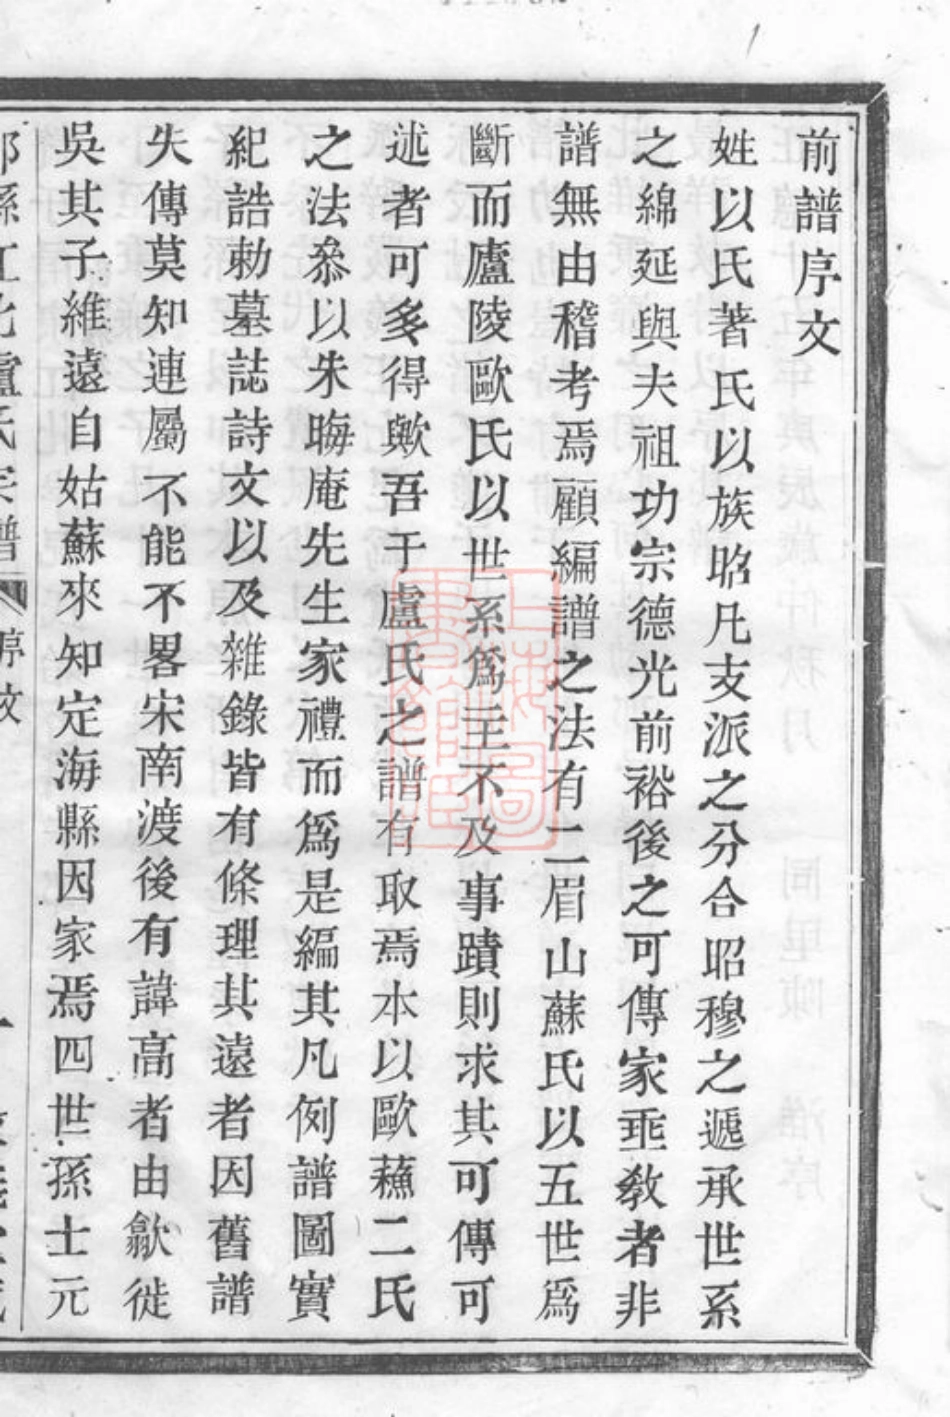 前譜序文
姓以氏著氏以族昭凡支派之分合昭穆之遞承世系
之綿延與夫祖功宗德光前裕後之可傳家乖教者非
譜無由稽考焉顧編譜之法有二眉山蘇氏以五世爲
斷而廬陵歐氏以世系爲主不及事蹟則求其可傳可
述者可多得歟吾于盧氏之譜有取焉本以歐蘓二氏
之法叅以朱晦庵先生家禮而爲是編其凡例譜圖實
紀誥勅墓誌詩文以及雜錄皆有條理其遠者因舊譜
失傳莫知連屬不能不畧宋南渡後有諱高者由歙徙
吳其子維遠自姑蘇來知定海縣因家焉四世孫士元
江北盧氏宗譜
上海圖書館藏